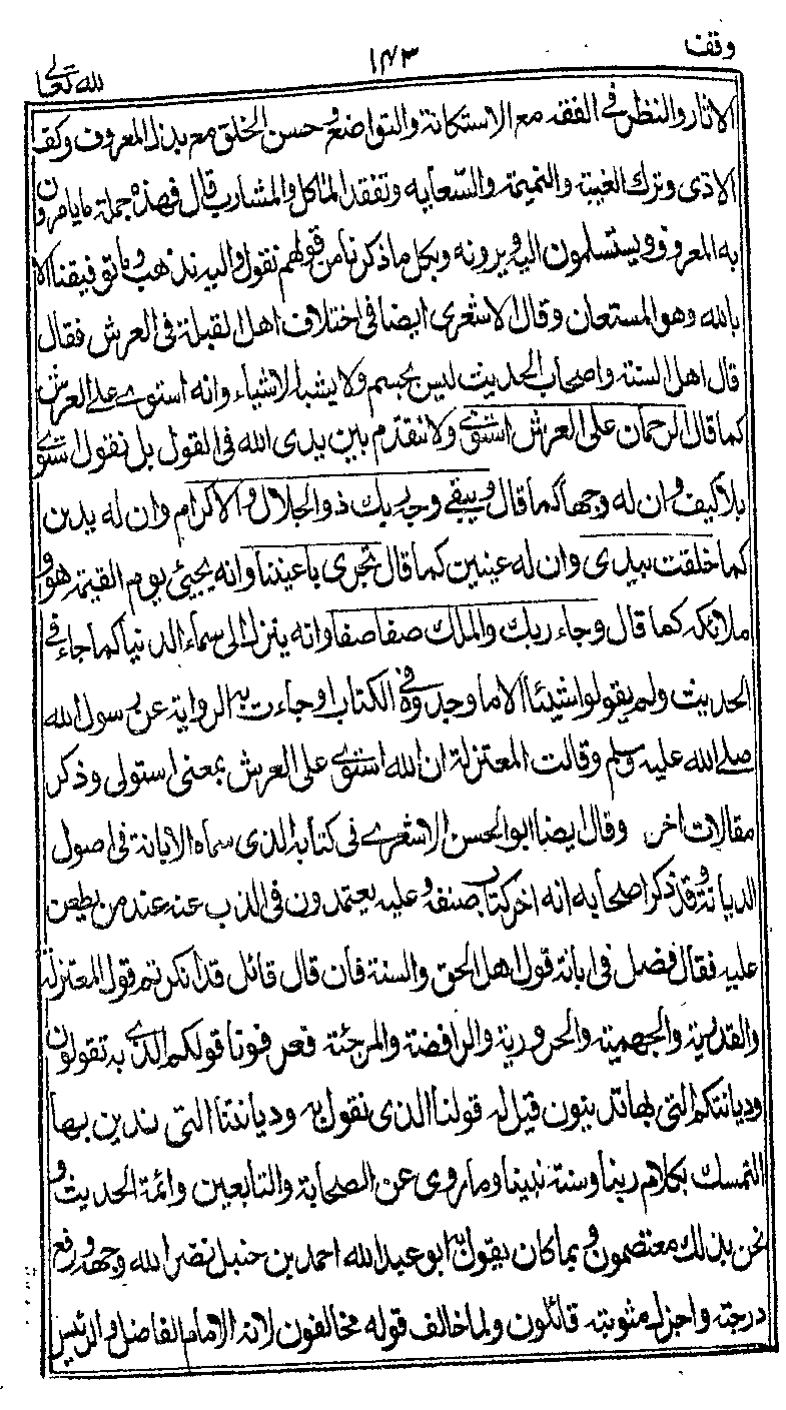 وقف
١٤٣
لله تعالى
الاثار والنظر في الفقه مع الاستكانة والتواضع وحسن الخلق مع بذل المعروف وكف
الاذى وترك الغيبة والنميمة والسعايه وتفقد الماكل والمشارب قال فهذه جملة مايامرون
به المعروف ويستسلمون اليه ويرونه وبكل ما ذكرنا من قولهم نقول واليه نذهب وما توفيقنا الا
بالله وهو المستعان وقال الاشعرى ايضا فى اختلاف اهل القبلة فى العرش فقال
قال اهل السنة واصحاب الحديث ليس بجسم ولا يشبه الاشياء وانه استوى على العرش
كما قال الرحمان على العرش استوى ولا نتقدم بين يدى الله فى القول بل نقول استوى
بلا كيف وان له وجها كما قال ويبقى وجه ربك ذو الجلال والاكرام وان له يدين
كما خلقت بيدى وان له عينين كما قال تجرى باعيننا وانه يجيئ يوم القيمة هو و
ملائكه كما قال وجاء ربك والملك صفا صفا وانه ينزل الى سماء الدنيا كما جاء في
الحديث ولم يقولوا شيئا الا ما وجدوه في الكتاب او جاءت به الرواية عن رسول الله
صلى الله عليه وسلم وقالت المعتزلة ان الله استوى على العرش بمعنى استولى وذكر
مقالات اخر وقال ايضا ابو الحسن الاشعرى فى كتابه الذى سماه الابانة فى اصول
الديانة وقد ذكر اصحابه انه اخر كتاب صنفه وعليه يعتمدون فى الذب عنه عند من يطعن
عليه فقال فصل فى ابانة قول اهل الحق والسنة فان قال قائل قد انكرتم قول المعتزلة
والقدرية والجهمية والحرورية والرافضة والمرجئة فعرفونا قولكم الذى به تقولون
وديانتكم التى بها تدينون قيل له قولنا الذى نقول به وديانتنا التى ندين بها
التمسك بكلام ربنا وسنة نبينا وما روى عن الصحابة والتابعين وائمة الحديث و
نحن بذلك معتصمون وبما كان يقول به ابو عبد الله احمد بن حنبل نضر الله وجهه ورفع
درجته واجزل مثوبته قائلون ولما خالف قوله مخالفون لانه الامام الفاضل والرئيس